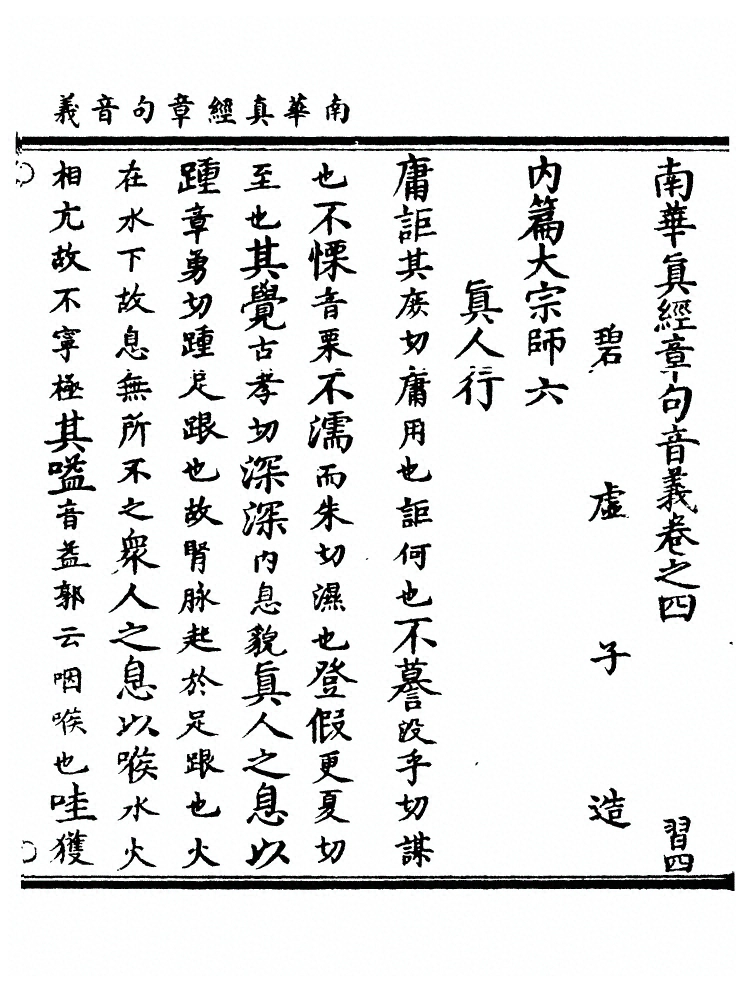 南華真經章句音義
南華眞經章句音義卷之四 習四
碧虛子造
內篇大宗師六
眞人行
庸詎其庶切庸用也詎何也不謩沒乎切謀
也不慄音栗不濡而朱切濕也登假更夏切
至也其覺古孝切深深內息貌眞人之息以
踵章勇切踵足跟也故腎脉起於足跟也火
在水下故息無所不之衆人之息以喉水火
相亢故不寧極其嗌音益郭云咽喉也哇獲